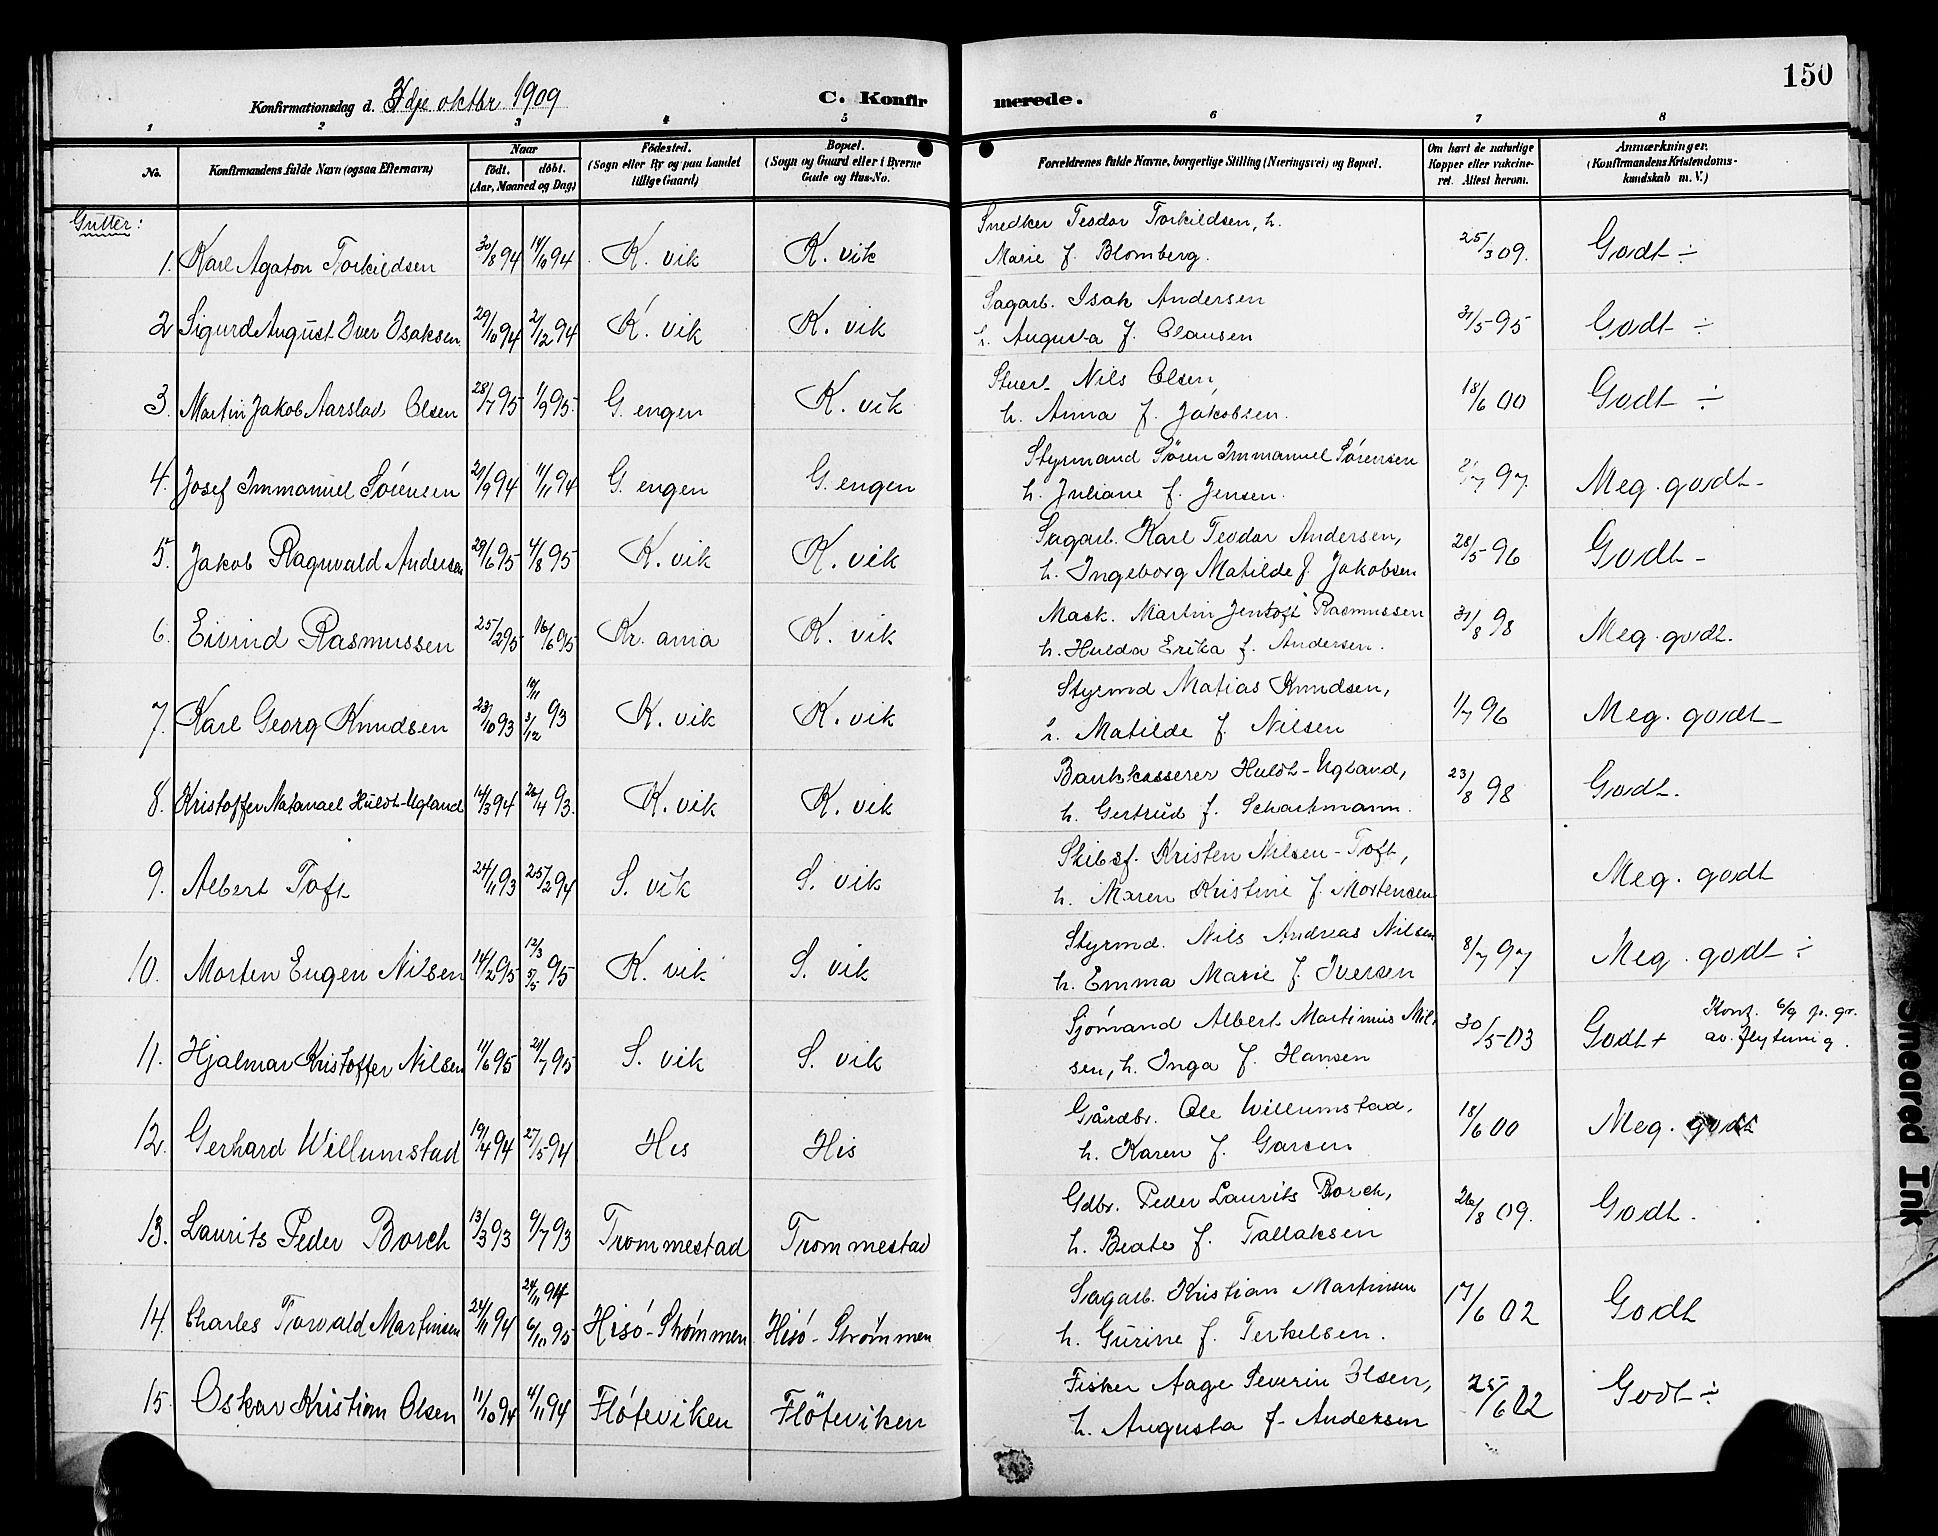 150
Konfirmationsdag d. 3dje oktbr 1909
C. Konfirmerede.
1 2 3 4 5 6 7 8
No.
Konfirmandens fulde Navn (ogsaa Efternavn)
Naar
födt. döbt.
(Aar, Maaned og Dag)
Födested.
(Sogn eller By og paa Landet
tillige Gaard)
Bopæl.
(Sogn og Gaard eller i Byerne
Gade og Hus-No.
Forældrenes fulde Navne, borgerlige Stilling (Næringsvei) og Bopæl.
Om havt de naturlige
Kopper eller vakcine-
ret. Attest herom.
Anmærkninger.
(Konfirmandens Kristendoms-
kundskab m. V.)
Gutter:
1. Karl Agaton Torkildsen 30/8 94 14/10 94 K. vik K. vik Snedker Teodor Torkildsen, h.
Marie f. Blomberg. 25/3 09. Godt ÷
2 Sigurd August Iver Isaksen 29/10 94 2/12 94 K. vik K. vik Sagarb. Isak Andersen
h. Augusta f. Clausen 31/5 95 Godt ÷
3. Martin Jakob Aarslad Olsen 28/7 95 1/9 95 G. engen K. vik Stuert Nils Olsen,
h. Anna f. Jakobsen. 18/6 00 Godt ÷
4. Josef Immanuel Sörensen 29/9 94 11/11 94 G. engen G. engen Styrmand Sören Immanuel Sörensen
h. Juliane f. Jensen. /7 97. Meg. godt
5. Jakob Ragnvald Andersen 29/6 95 4/8 95 K. vik K. vik Sagarb. Karl Teodor Andersen,
h. Ingeborg Matilde f. Jakobsen 28/5 96 Godt
6. Eivind Rasmussen 25/2 95 16/6 95 Kr. ania K. vik Mask. Martin Jentoft Rasmussen
h. Hulda Erika f. Andersen. 31/8 98 Meg. godt.
7. Karl Georg Knudsen 23/10 93 18/11 3/12 93 K. vik K. vik Styrmd Matias Knudsen,
h. Matilde f. Nilsen 1/7 96 Meg. godt
8. Kristoffer Natanael Huldt-Ugland 14/3 94 26/4 93. K. vik K. vik Bankkasserer Huldt-Ugland,
h. Gertrud f. Schartmann. 23/8 98 Godt.
9. Albert Toft 24/11 93 25/2 94 S. vik S. vik Skibsf. Kristen Nilsen-Toft,
h. Maren Kristine f. Mortensen Meg. godt
10. Morten Eugen Nilsen 14/2 95 12/3 5/5 95 K. vik S. vik Styrmd. Nils Andreas Nilsen
h. Emma Marie f. Iversen 8/7 97 Meg. godt ÷
11. Hjalmar Kristoffer Nilsen 11/6 95 21/7 95 S. vik S. vik Sjömand Albert Martinius Nil-
sen, h. Inga f. Hansen 30/5 03 Godt + Konf. 6/9 p. gr.
av. flytning.
12. Gerhard Willumstad 19/4 94 27/5 94 His His Gårdbr. Ole Willumstad,
h. Karen f. Garsen. 18/6 00 Meg. godt
13. Laurits Peder Borch 13/3 93 9/7 93 Trommestad Trommestad Gdbr. Peder Laurits Borch,
h. Beate f. Tallaksen 26/8 09. Godt.
14. Charles Torvald Martinsen 24/11 94 24/11 94 6/10 95 Hisö-Strömmen Hisö-Strömmen Sagarb. Kristian Martinsen
h. Gurine f. Terkelsen. 17/6 02 Godt
15. Oskar Kristian Olsen 11/10 94 4/11 94 Flöteviken Flöteviken Fisker Aage Severin Olsen,
h. Augusta f. Andersen 25/6 02 Godt ÷
Smeared Ink